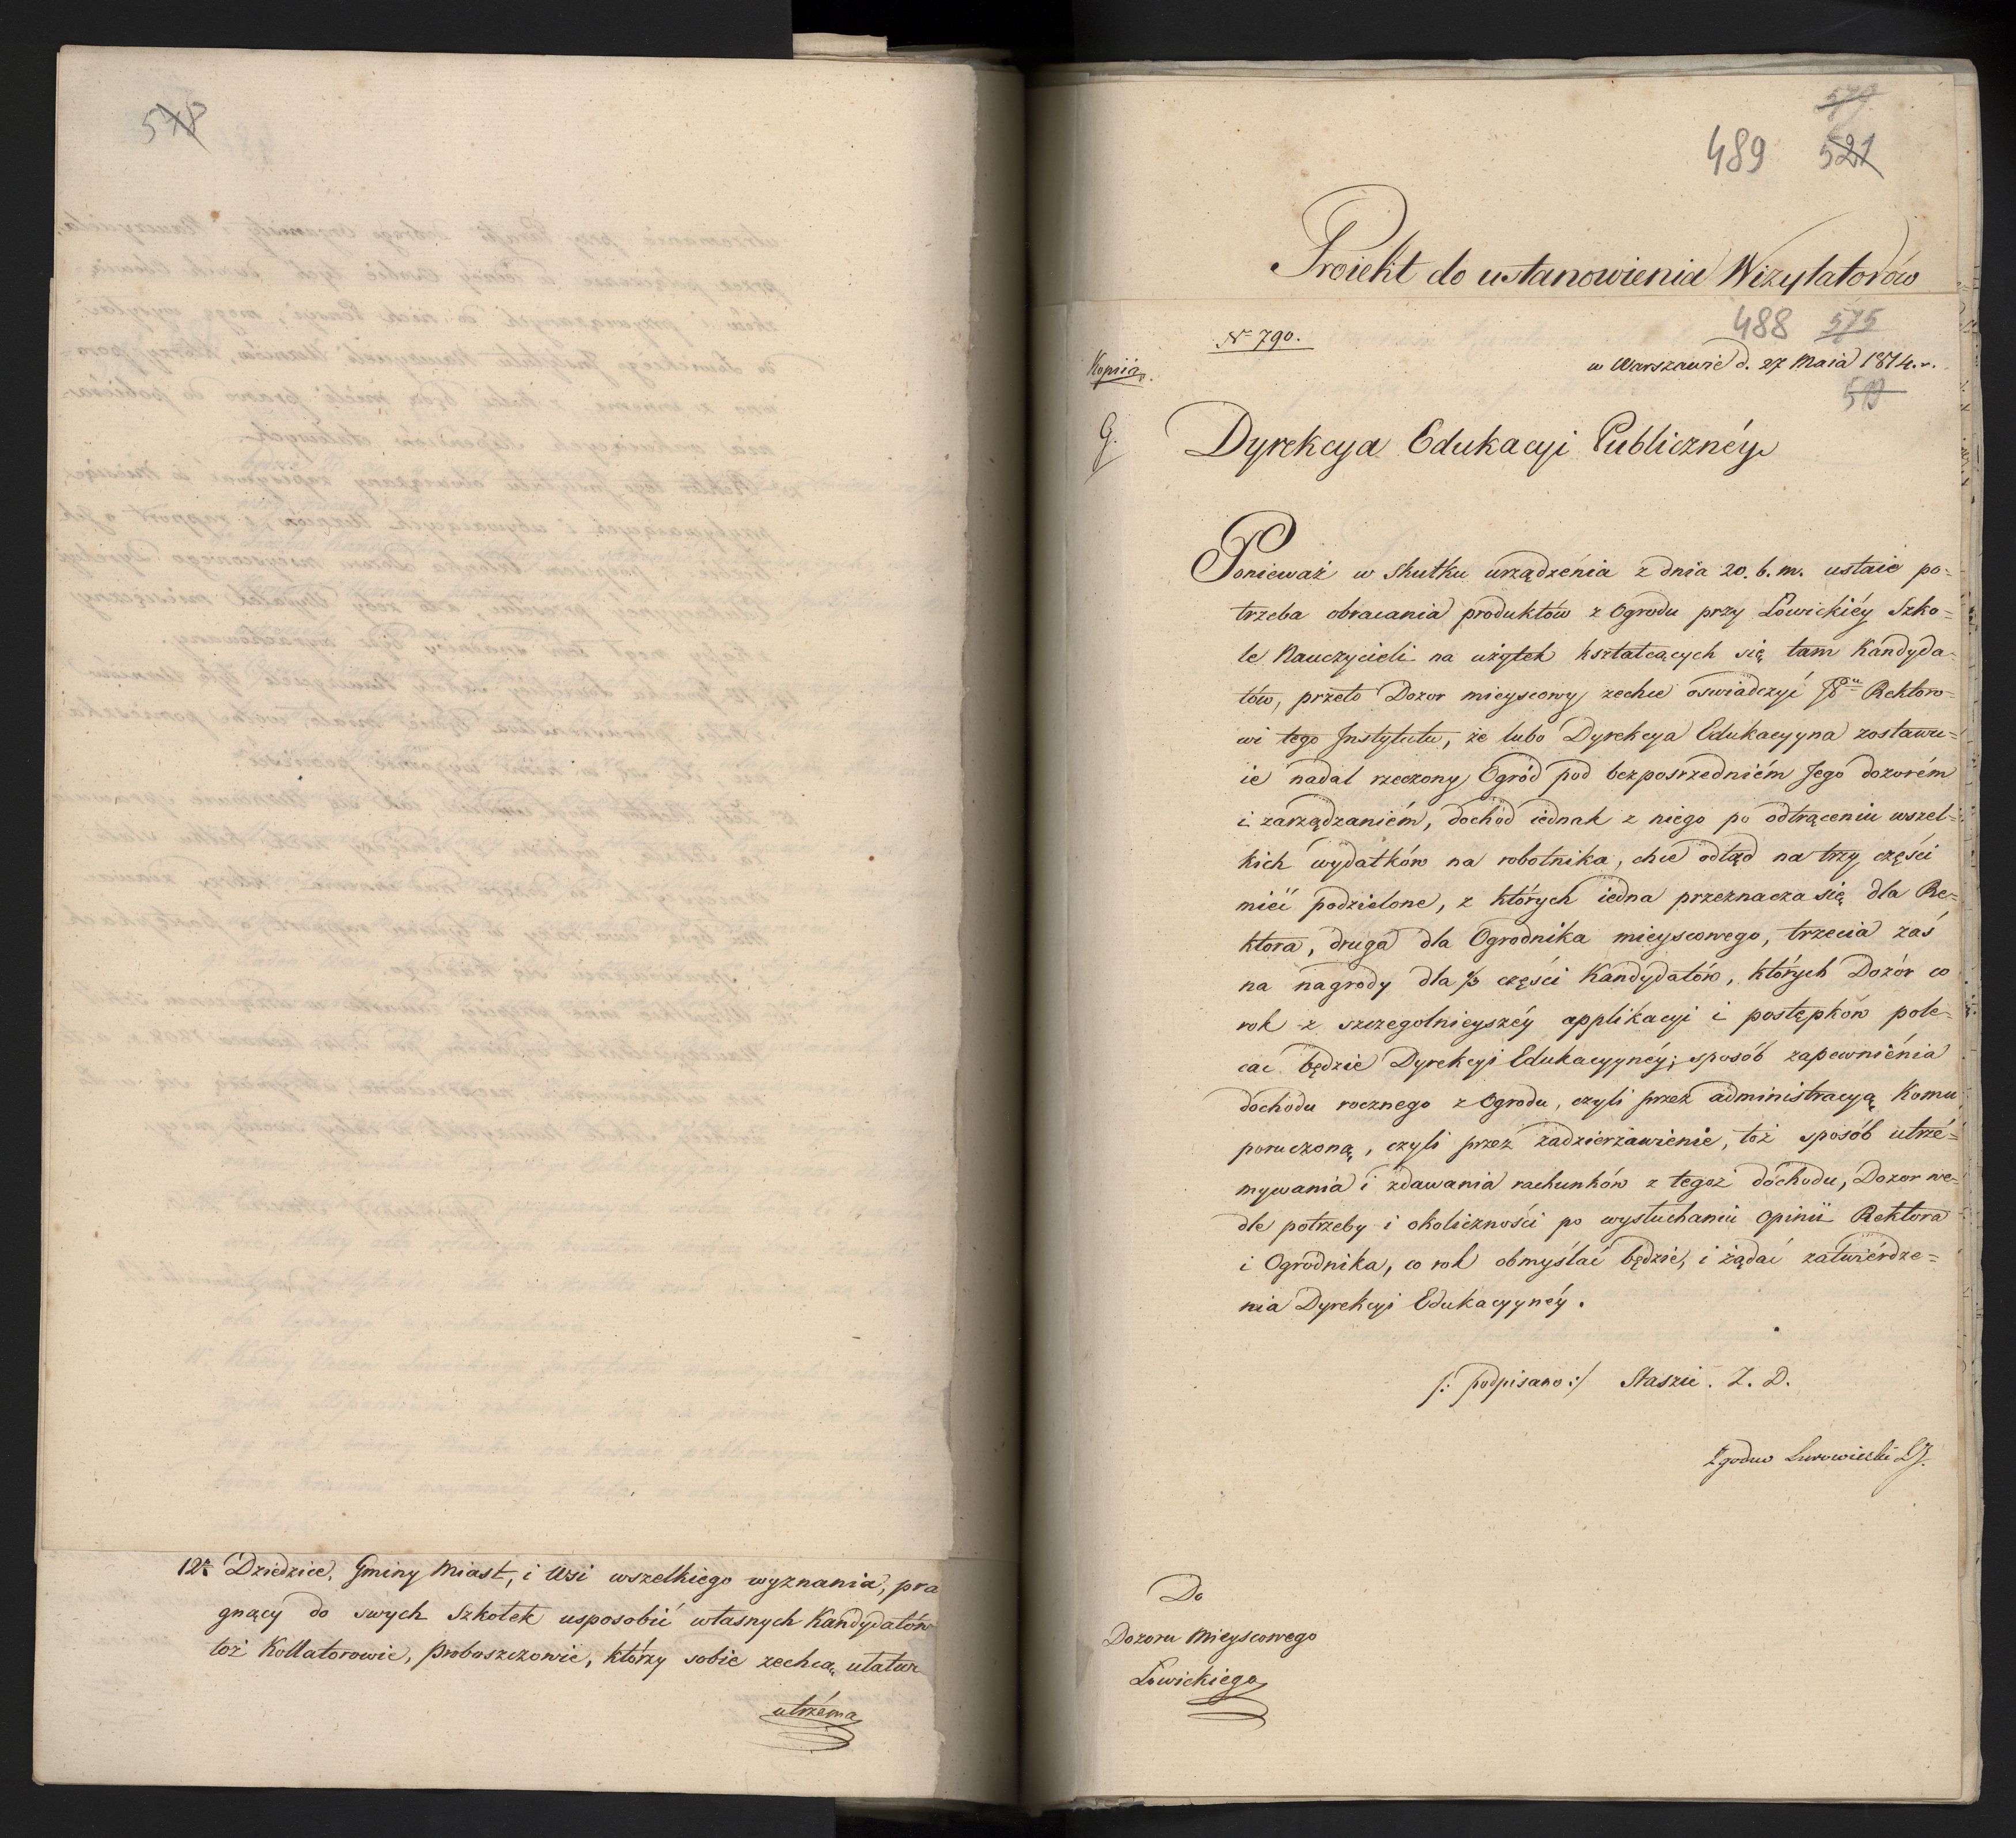 578
12. Dziedzice, Gminy Miast, i Wsi wszelkiego wyznania, pra
gnący do swych Szkołek usposobić własnych Kandydatów
toż Kollatorowie, Proboszczowie, którzy sobie zechcą ułatw
utrzéma
579
489 521
Proiekt do ustanowienia Wizytatorów
488 575
No 790.
w Warszawie d. 27 Maia 1814. r.
Kopiia.
519
G.
Dyrekcya Edukacyi Publicznéy
Ponieważ w skutku urządzénia z dnia 20. b. m. ustaie po=
trzeba obracania produktów z Ogrodu przy Łowickiéy Szko=
le Nauczycieli na użytek kształcących się tam Kandyda=
tów, przeto Dozor mieyscowy zechce oswiadczyć JPu Rektoro=
wi tego Instytutu, że lubo Dyrekcya Edukacyyna zostawu=
ie nadal rzeczony Ogród pod bezposrzedniém Jego dozorém
i zarządzaniém, dochód iednak z niego po odtrąceniu wszel=
kich wydatków na robotnika, chce odtąd na trzy części
mieć podzielone, z których iedna przeznacza się dla Re=
ktora, druga dla Ogrodnika mieyscowego, trzecia zaś
na nagrody dla 1/3 części Kandydatów, których Dozór co
rok z szczegolnieyszéy applikacyi i postępków pole=
cać będzie Dyrekcyi Edukacyynéy; sposób zapewniénia
dochodu rocznego z Ogrodu, czyli przez administracyą komu
poruczoną, czyli przez zadzierżawienie, toż sposób utrzé=
mywania i zdawania rachunków z tegoż dochodu, Dozor we=
dle potrzeby i okoliczności po wysłuchaniu opinii Rektora
i Ogrodnika, co rok obmyślać będzie, i żądać zatwiérdze=
nia Dyrekcyi Edukacyynéy.
/: podpisano :/ Staszic. Z. D.
Zgodno Surowiecki
Do
Dozoru Mieyscowego
Łowickiego